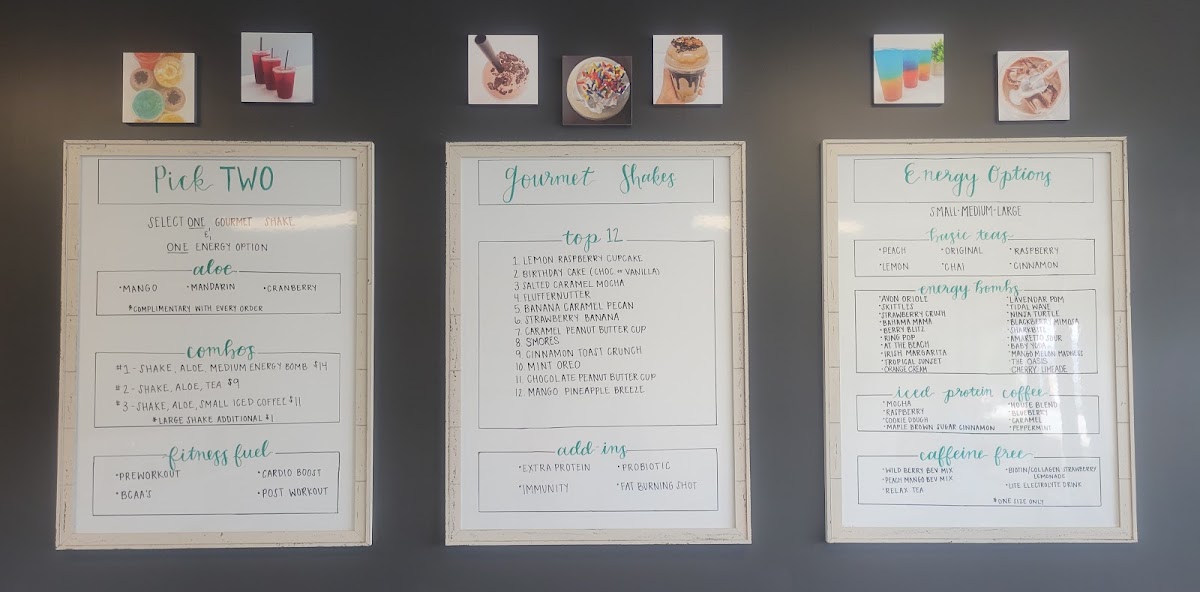 Pick TWO
SELECT ONE GOURMET SHAKE
&
ONE ENERGY OPTION
aloe
•MANGO •MANDARIN •CRANBERRY
*COMPLIMENTARY WITH EVERY ORDER
combos
#1 - SHAKE, ALOE, MEDIUM ENERGY BOMB $14
#2 - SHAKE, ALOE, TEA $9
#3 - SHAKE, ALOE, SMALL ICED COFFEE $11
*LARGE SHAKE ADDITIONAL $1
fitness fuel
•PREWORKOUT •CARDIO BOOST
•BCAA'S •POST WORKOUT
Gourmet Shakes
top 12
1. LEMON RASPBERRY CUPCAKE
2 BIRTHDAY CAKE (CHOC OR VANILLA)
3 SALTED CARAMEL MOCHA
4. FLUFFERNUTTER
5 BANANA CARAMEL PECAN
6. STRAWBERRY BANANA
7 CARAMEL PEANUT BUTTER CUP
8 S'MORES
9 CINNAMON TOAST CRUNCH
10 MINT OREO
11. CHOCOLATE PEANUT BUTTER CUP
12. MANGO PINEAPPLE BREEZE
add-ins
•EXTRA PROTEIN •PROBIOTIC
•IMMUNITY •FAT BURNING SHOT
Energy Options
SMALL-MEDIUM-LARGE
basic teas
•PEACH •ORIGINAL •RASPBERRY
•LEMON •CHAI •CINNAMON
energy bombs
•AVON ORIOLE •LAVENDAR POM
•SKITTLES •TIDAL WAVE
•STRAWBERRY CRUSH •NINJA TURTLE
•BAHAMA MAMA •BLACKBERRY MIMOSA
•BERRY BLITZ •SHARKBITE
•RING POP •AMARETTO SOUR
•AT THE BEACH •BABY YODA
•IRISH MARGARITA •MANGO MELON MADNESS
•TROPICAL SUNSET •THE OASIS
•ORANGE CREAM •CHERRY LIMEADE
iced protein coffee
•MOCHA •HOUSE BLEND
•RASPBERRY •BLUEBERRY
•COOKIE DOUGH •CARAMEL
•MAPLE BROWN SUGAR CINNAMON •PEPPERMINT
caffeine free
•WILD BERRY BEV MIX •BIOTIN/COLLAGEN STRAWBERRY
LEMONADE
•PEACH MANGO BEV MIX
•RELAX TEA •LITE ELECTROLYTE DRINK
*ONE SIZE ONLY